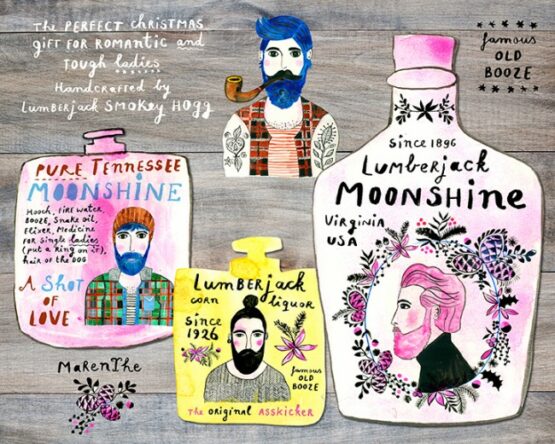 The PERFECT CHRISTMAS
GIFT FOR ROMANTIC and
TOUGH ladies
Handcrafted by
LUMBERJACK SMOKEY HOGG
famous
OLD
BOOZE
PURE TENNESSEE
MOONSHINE
Hooch, FIRE WATER,
BOOZE, Snake oil,
Elixer, Medicine
FOR Single ladies
(put a Ring on it),
hair of the DOG
A SHOT
OF
LOVE
LUMBERJACK
CORN LIQUOR
Since
1926
famous
OLD
BOOZE
The ORIGINAL ASSKICKER
Since 1896
Lumberjack
MOONSHINE
VIRGINIA
USA
MaRenThe